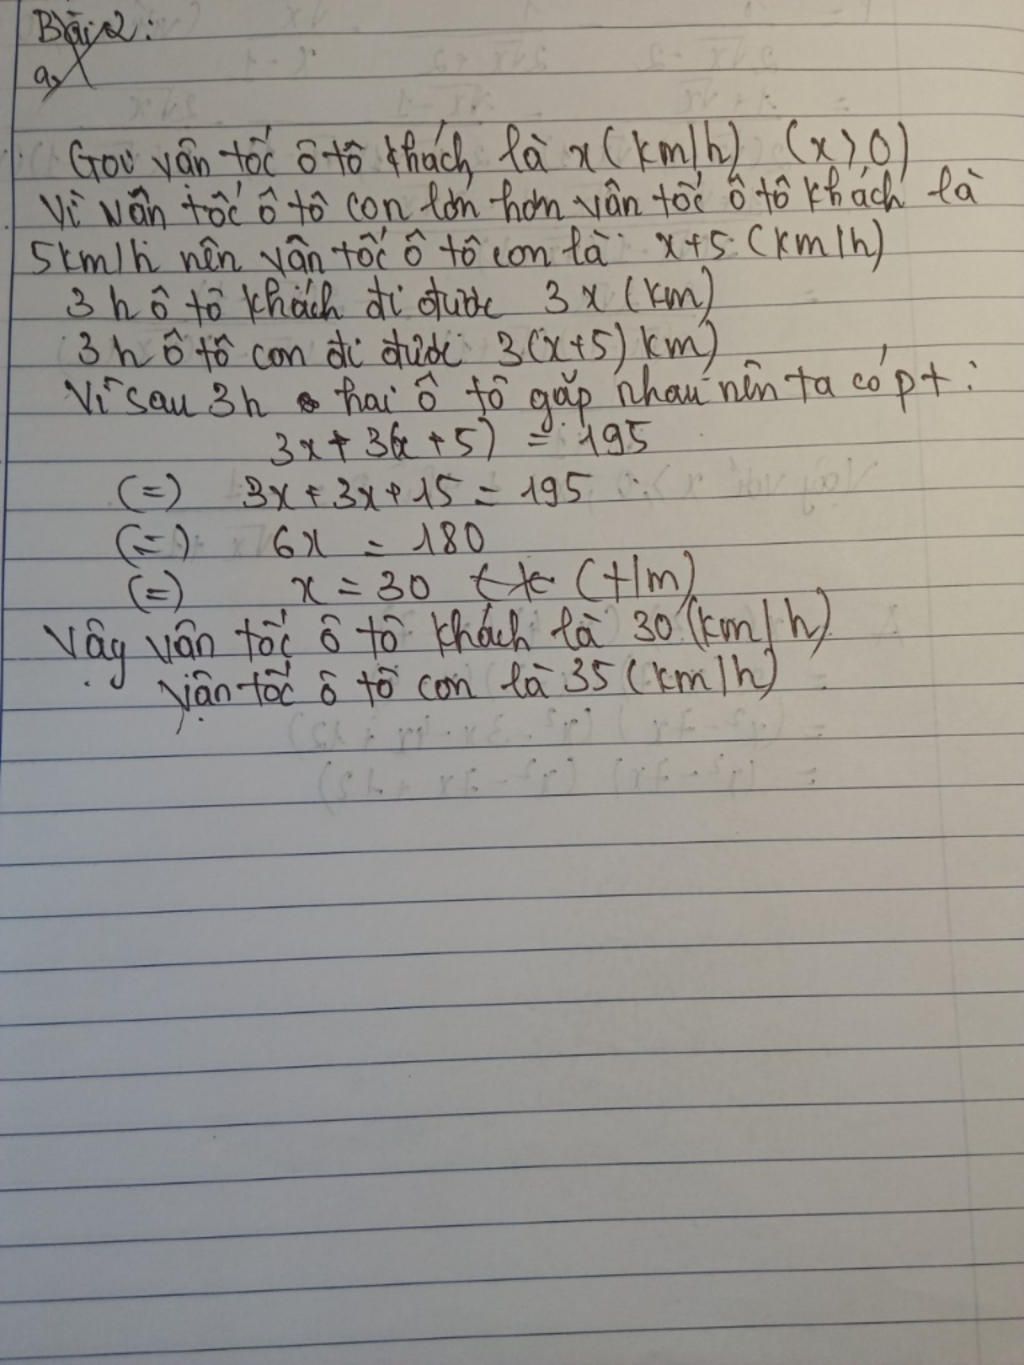 Bài 2:
a,
Gọi vận tốc ô tô khách là x (km/h) (x>0)
Vì vận tốc ô tô con lớn hơn vận tốc ô tô khách là
5km/h nên vận tốc ô tô con là x+5 (km/h)
3 h ô tô khách đi được 3x (km)
3 h ô tô con đi được 3(x+5) km)
Vì sau 3h hai ô tô gặp nhau nên ta có pt:
3x + 3(x+5) = 195
(=) 3x + 3x + 15 = 195
(=) 6x = 180
(=) x = 30 (t/m)
Vậy vận tốc ô tô khách là 30 (km/h)
vận tốc ô tô con là 35 (km/h)